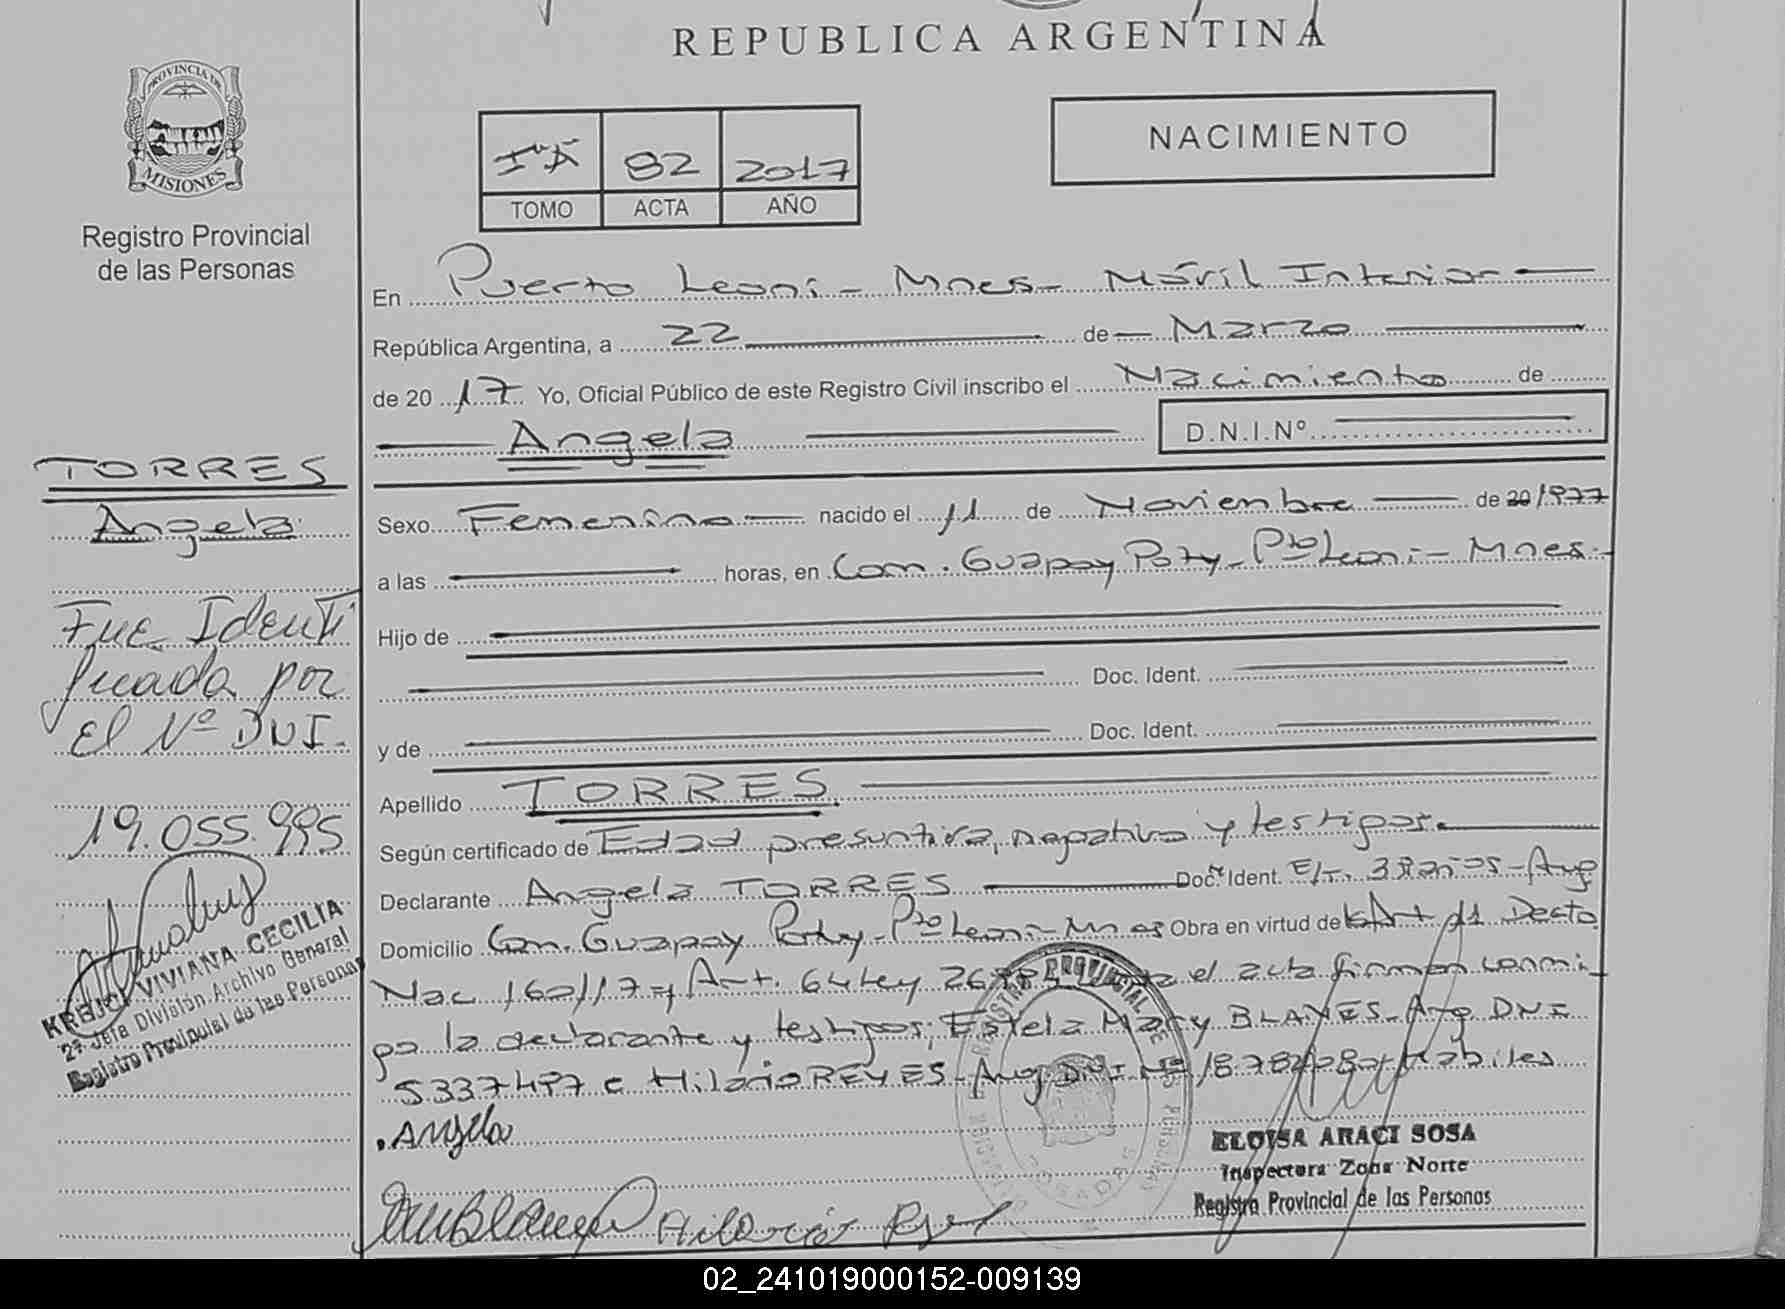 REPUBLICA ARGENTINA
PROVINCIA DE
MISIONES
Registro Provincial
de las Personas
82 2017
TOMO ACTA AÑO
NACIMIENTO
En Puerto Leoni - Mnes - Móvil Interior
República Argentina, a 22 de Marzo
de 20 17 Yo, Oficial Público de este Registro Civil inscribo el Nacimiento de
Angela D.N.I.Nº
Sexo Femenino nacido el 11 de Noviembre de 20/1977
a las horas, en Com. Guapoy Poty - Pto Leoni - Mnes.
Hijo de
Doc. Ident.
y de Doc. Ident.
Apellido TORRES
Según certificado de Edad presuntiva, negativo y testigos.
Declarante Angela TORRES Doc. Ident. E/T. 39 años - Arg
Domicilio Com. Guapoy Poty - Pto Leoni - Mnes Obra en virtud de Art Decto
Nac 160/17 y Art. 64 Ley el acta firman conmi-
go la declarante y testigos; Estela Mary BLANES - Arg DNI
5337497 e Hilario REYES - Arg DNI Nº Habiles
Angela
Hilario
ELOISA ARACI SOSA
Inspectora Zona Norte
Registro Provincial de las Personas
TORRES
Angela
Fue Identi
ficada por
El Nº DNI.
19.055.995
VIVIANA CECILIA
2º Jefe División Archivo General
Registro Provincial de las Personas
02_241019000152-009139